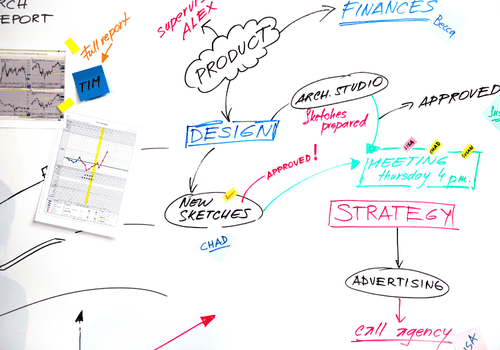 RCH
EPORT
Full report
TIM
supervis
ALEX
PRODUCT
FINANCES
Becca
ARCH. STUDIO
Sketches
prepared
APPROVED
DESIGN
MEETING
thursday 4 pm.
APPROVED!
NEW
SKETCHES
CHAD
STRATEGY
ADVERTISING
call agency